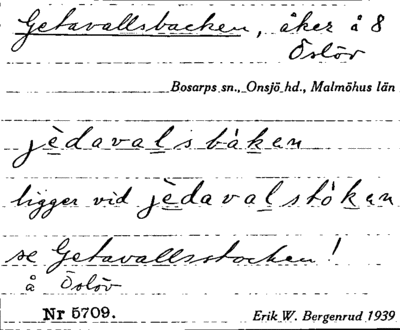 Getavallsbacken, åker å 8
Östöv
Bosarps sn., Onsjö hd., Malmöhus län
jèdavals báken
ligger vid jèdavalstóken
se Getavallsstocken!
å Östöv
Nr 5709.
Erik W. Bergenrud 1939